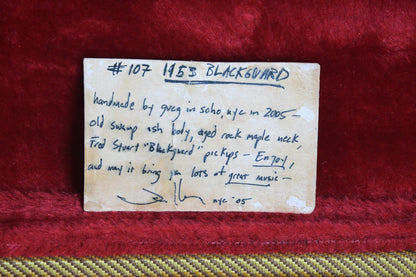 #107 1953 BLACKGUARD
handmade by greg in soho, nyc in 2005 –
old swamp ash body, aged rock maple neck,
Fred Stuart "Blackguard" pickups – Enjoy,
and may it bring you lots of great music –
nyc '05